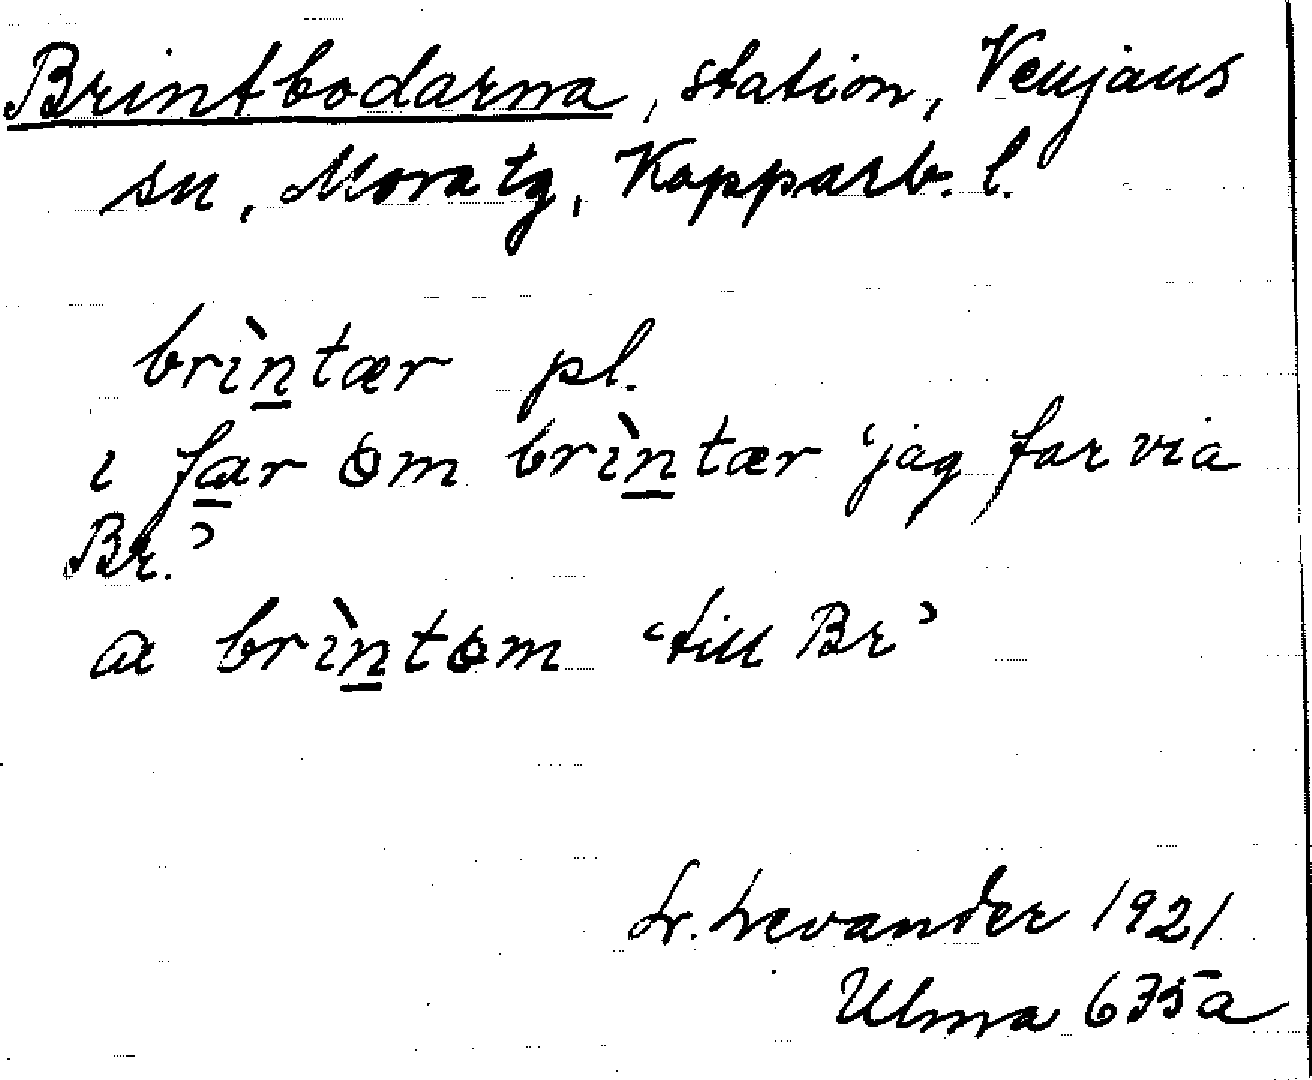 Brintbodarna, station, Venjans
sn, Mora tg, Kopparb. l.
brı̀n̲tær pl.
ı fa̲r ɵm brı̀n̲tær ‘jag far via
Br.’
a brı̀n̲tɵm ‘till Br’
L. Levander 1921
Ulma 675a